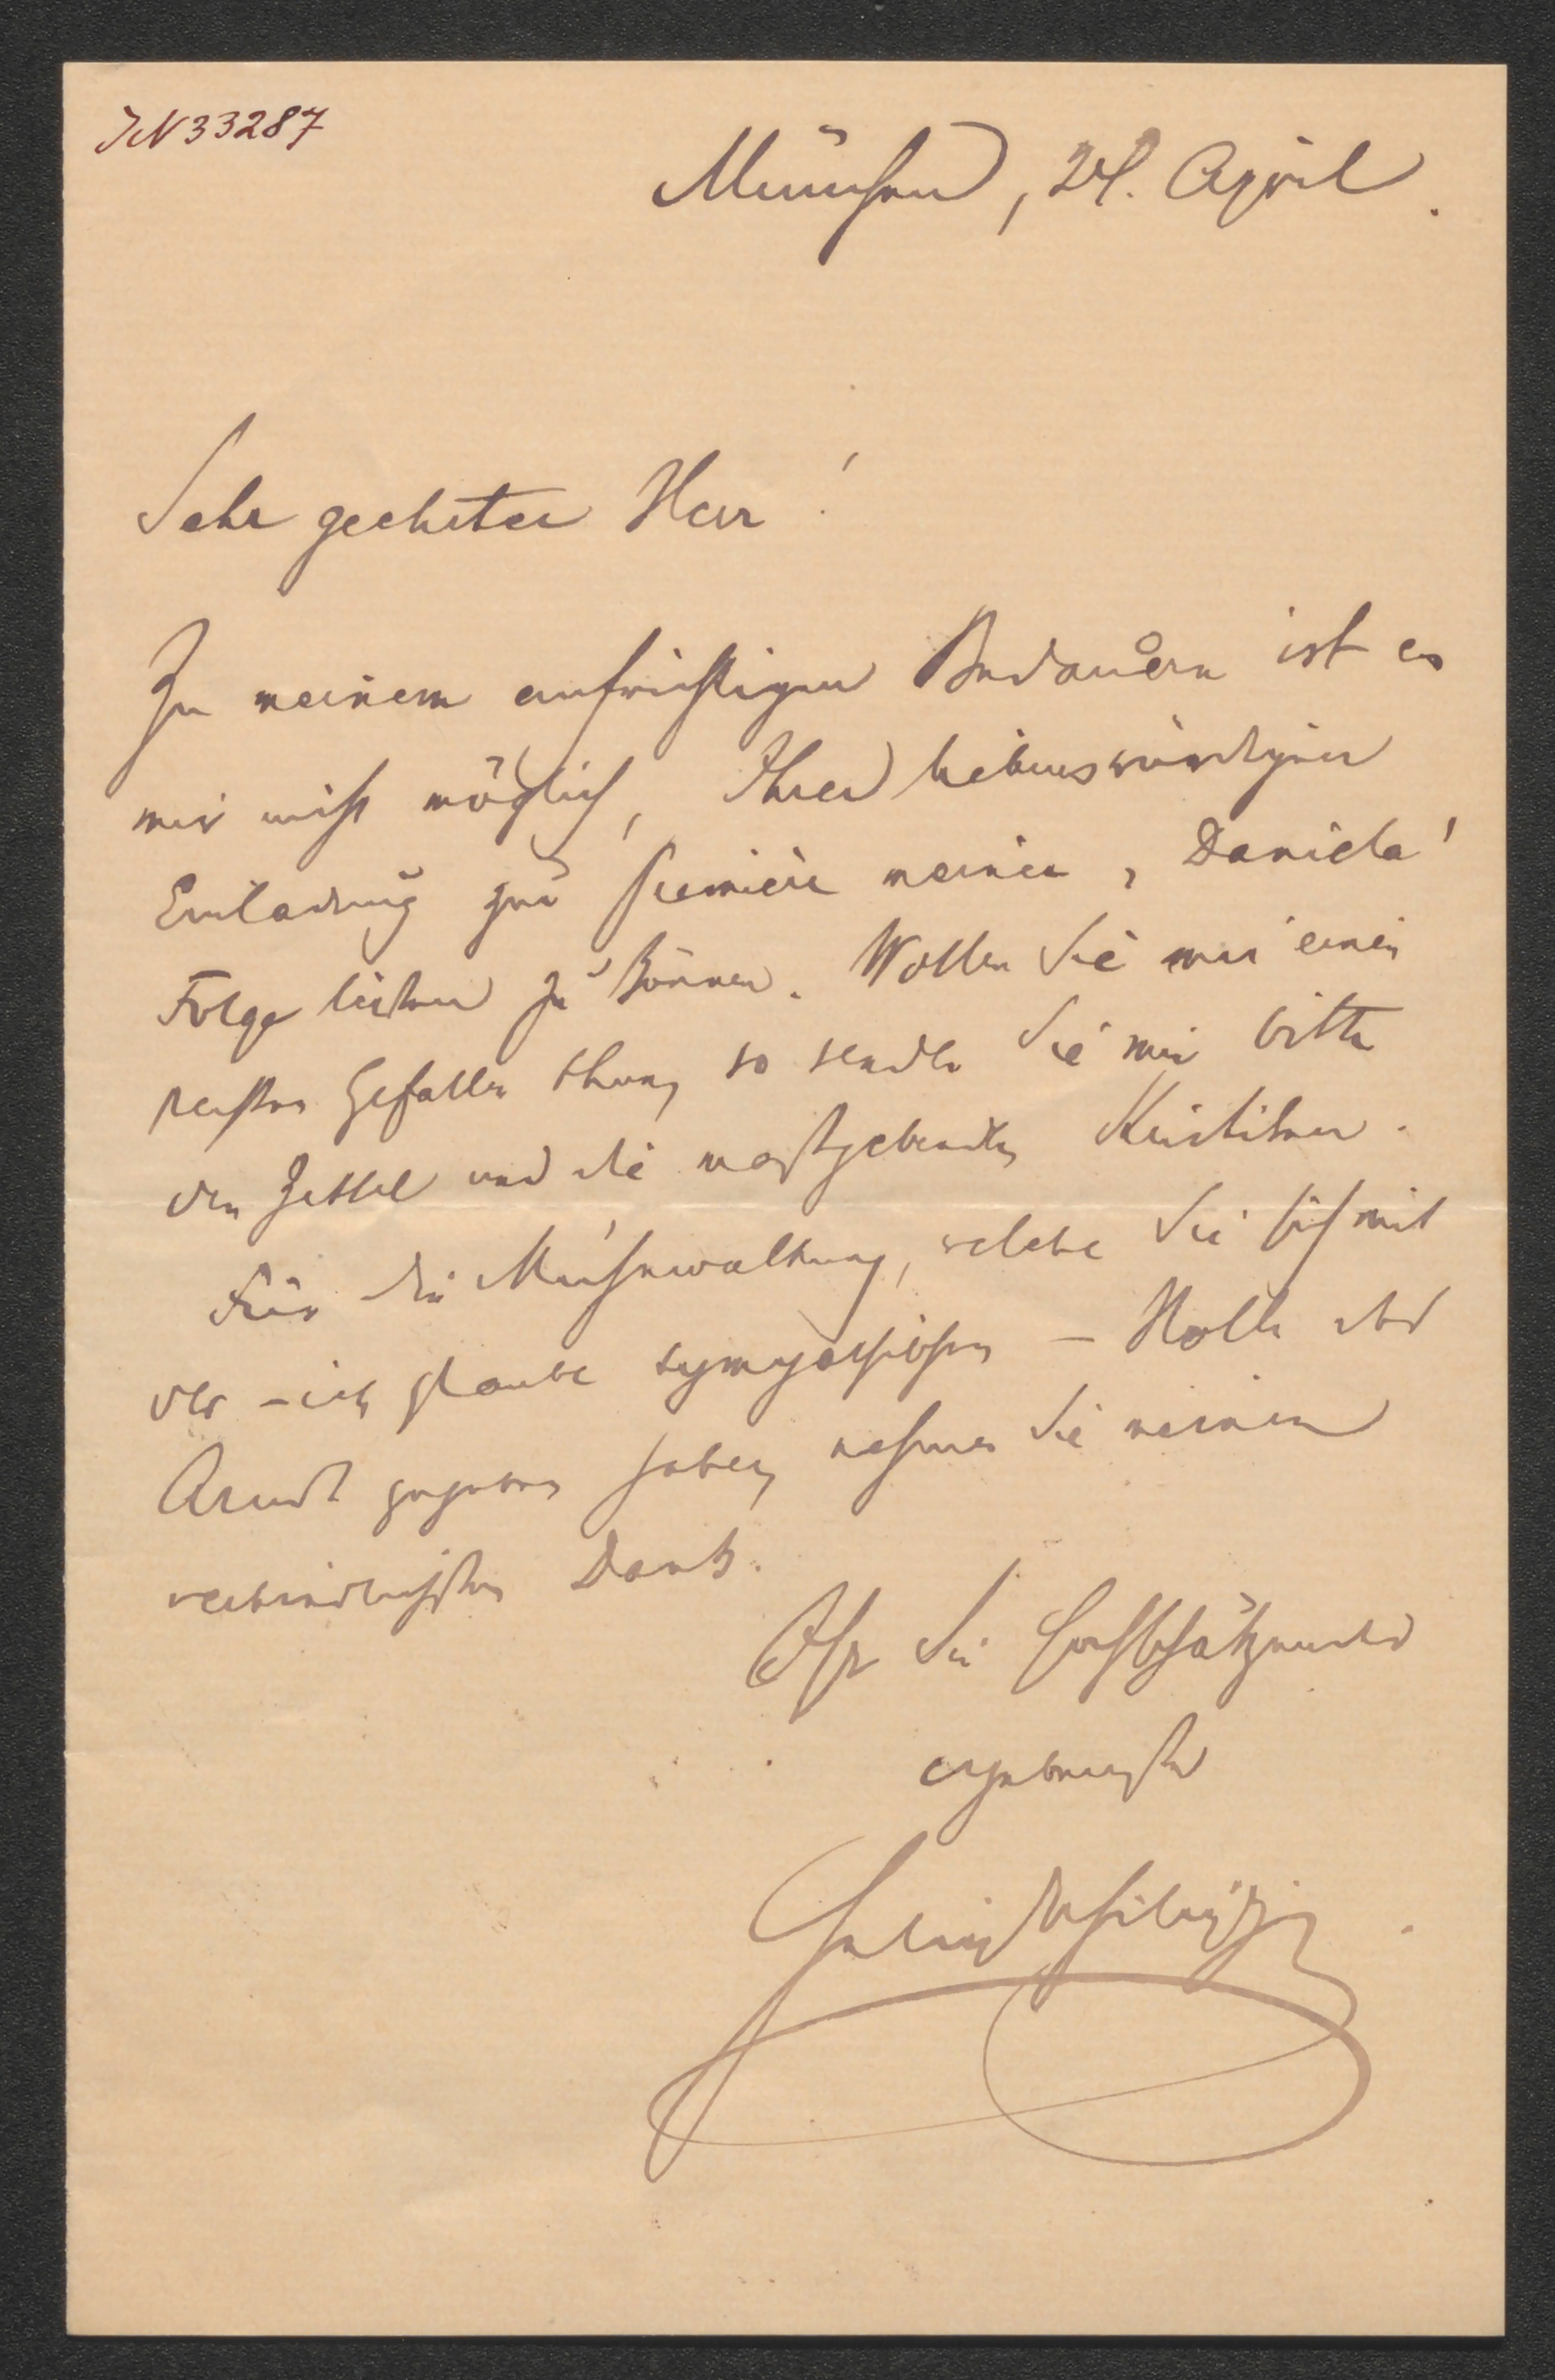 JN 33287
München, 24. April.
Sehr geehrter Herr!
Zu meinem aufrichtigen Bedauern ist es
mir nicht möglich, Ihrer liebenswürdigen
Einladung zur Première meiner „Daniela"
Folge leisten zu können. Wollen Sie mir einen
Gefallen thun, so senden Sie mir bitte
den Zettel und die maßgebenden Kritiken.
Für die Mühewaltung, welche Sie sich mit
der – ich glaube sympathischen – Rolle des
Arndt gegeben haben, nehmen Sie meinen
verbindlichsten Dank.
Ihr Sie hochschätzender
ergebenster
Felix Philippi